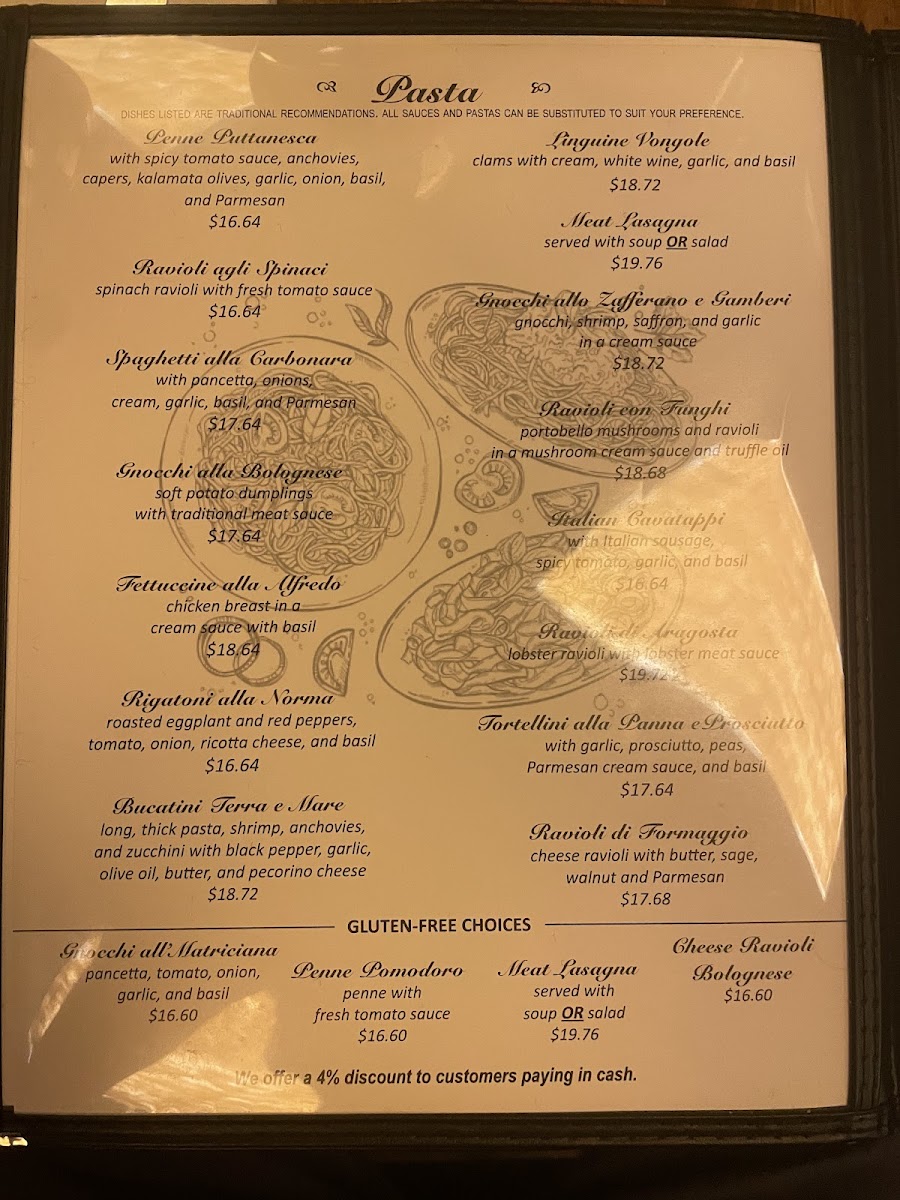 Pasta
DISHES LISTED ARE TRADITIONAL RECOMMENDATIONS. ALL SAUCES AND PASTAS CAN BE SUBSTITUTED TO SUIT YOUR PREFERENCE.
Penne Puttanesca
with spicy tomato sauce, anchovies,
capers, kalamata olives, garlic, onion, basil,
and Parmesan
$16.64
Ravioli agli Spinaci
spinach ravioli with fresh tomato sauce
$16.64
Spaghetti alla Carbonara
with pancetta, onions,
cream, garlic, basil, and Parmesan
$17.64
Gnocchi alla Bolognese
soft potato dumplings
with traditional meat sauce
$17.64
Fettuccine alla Alfredo
chicken breast in a
cream sauce with basil
$18.64
Rigatoni alla Norma
roasted eggplant and red peppers,
tomato, onion, ricotta cheese, and basil
$16.64
Bucatini Terra e Mare
long, thick pasta, shrimp, anchovies,
and zucchini with black pepper, garlic,
olive oil, butter, and pecorino cheese
$18.72
Linguine Vongole
clams with cream, white wine, garlic, and basil
$18.72
Meat Lasagna
served with soup OR salad
$19.76
Gnocchi allo Zafferano e Gamberi
gnocchi, shrimp, saffron, and garlic
in a cream sauce
$18.72
Ravioli con Funghi
portobello mushrooms and ravioli
in a mushroom cream sauce and truffle oil
$18.68
Italian Cavatappi
with Italian sausage,
spicy tomato, garlic, and basil
$16.64
Ravioli di Aragosta
lobster ravioli with lobster meat sauce
$19.72
Tortellini alla Panna e Prosciutto
with garlic, prosciutto, peas,
Parmesan cream sauce, and basil
$17.64
Ravioli di Formaggio
cheese ravioli with butter, sage,
walnut and Parmesan
$17.68
GLUTEN-FREE CHOICES
Gnocchi all'Matriciana
pancetta, tomato, onion,
garlic, and basil
$16.60
Penne Pomodoro
penne with
fresh tomato sauce
$16.60
Meat Lasagna
served with
soup OR salad
$19.76
Cheese Ravioli
Bolognese
$16.60
We offer a 4% discount to customers paying in cash.